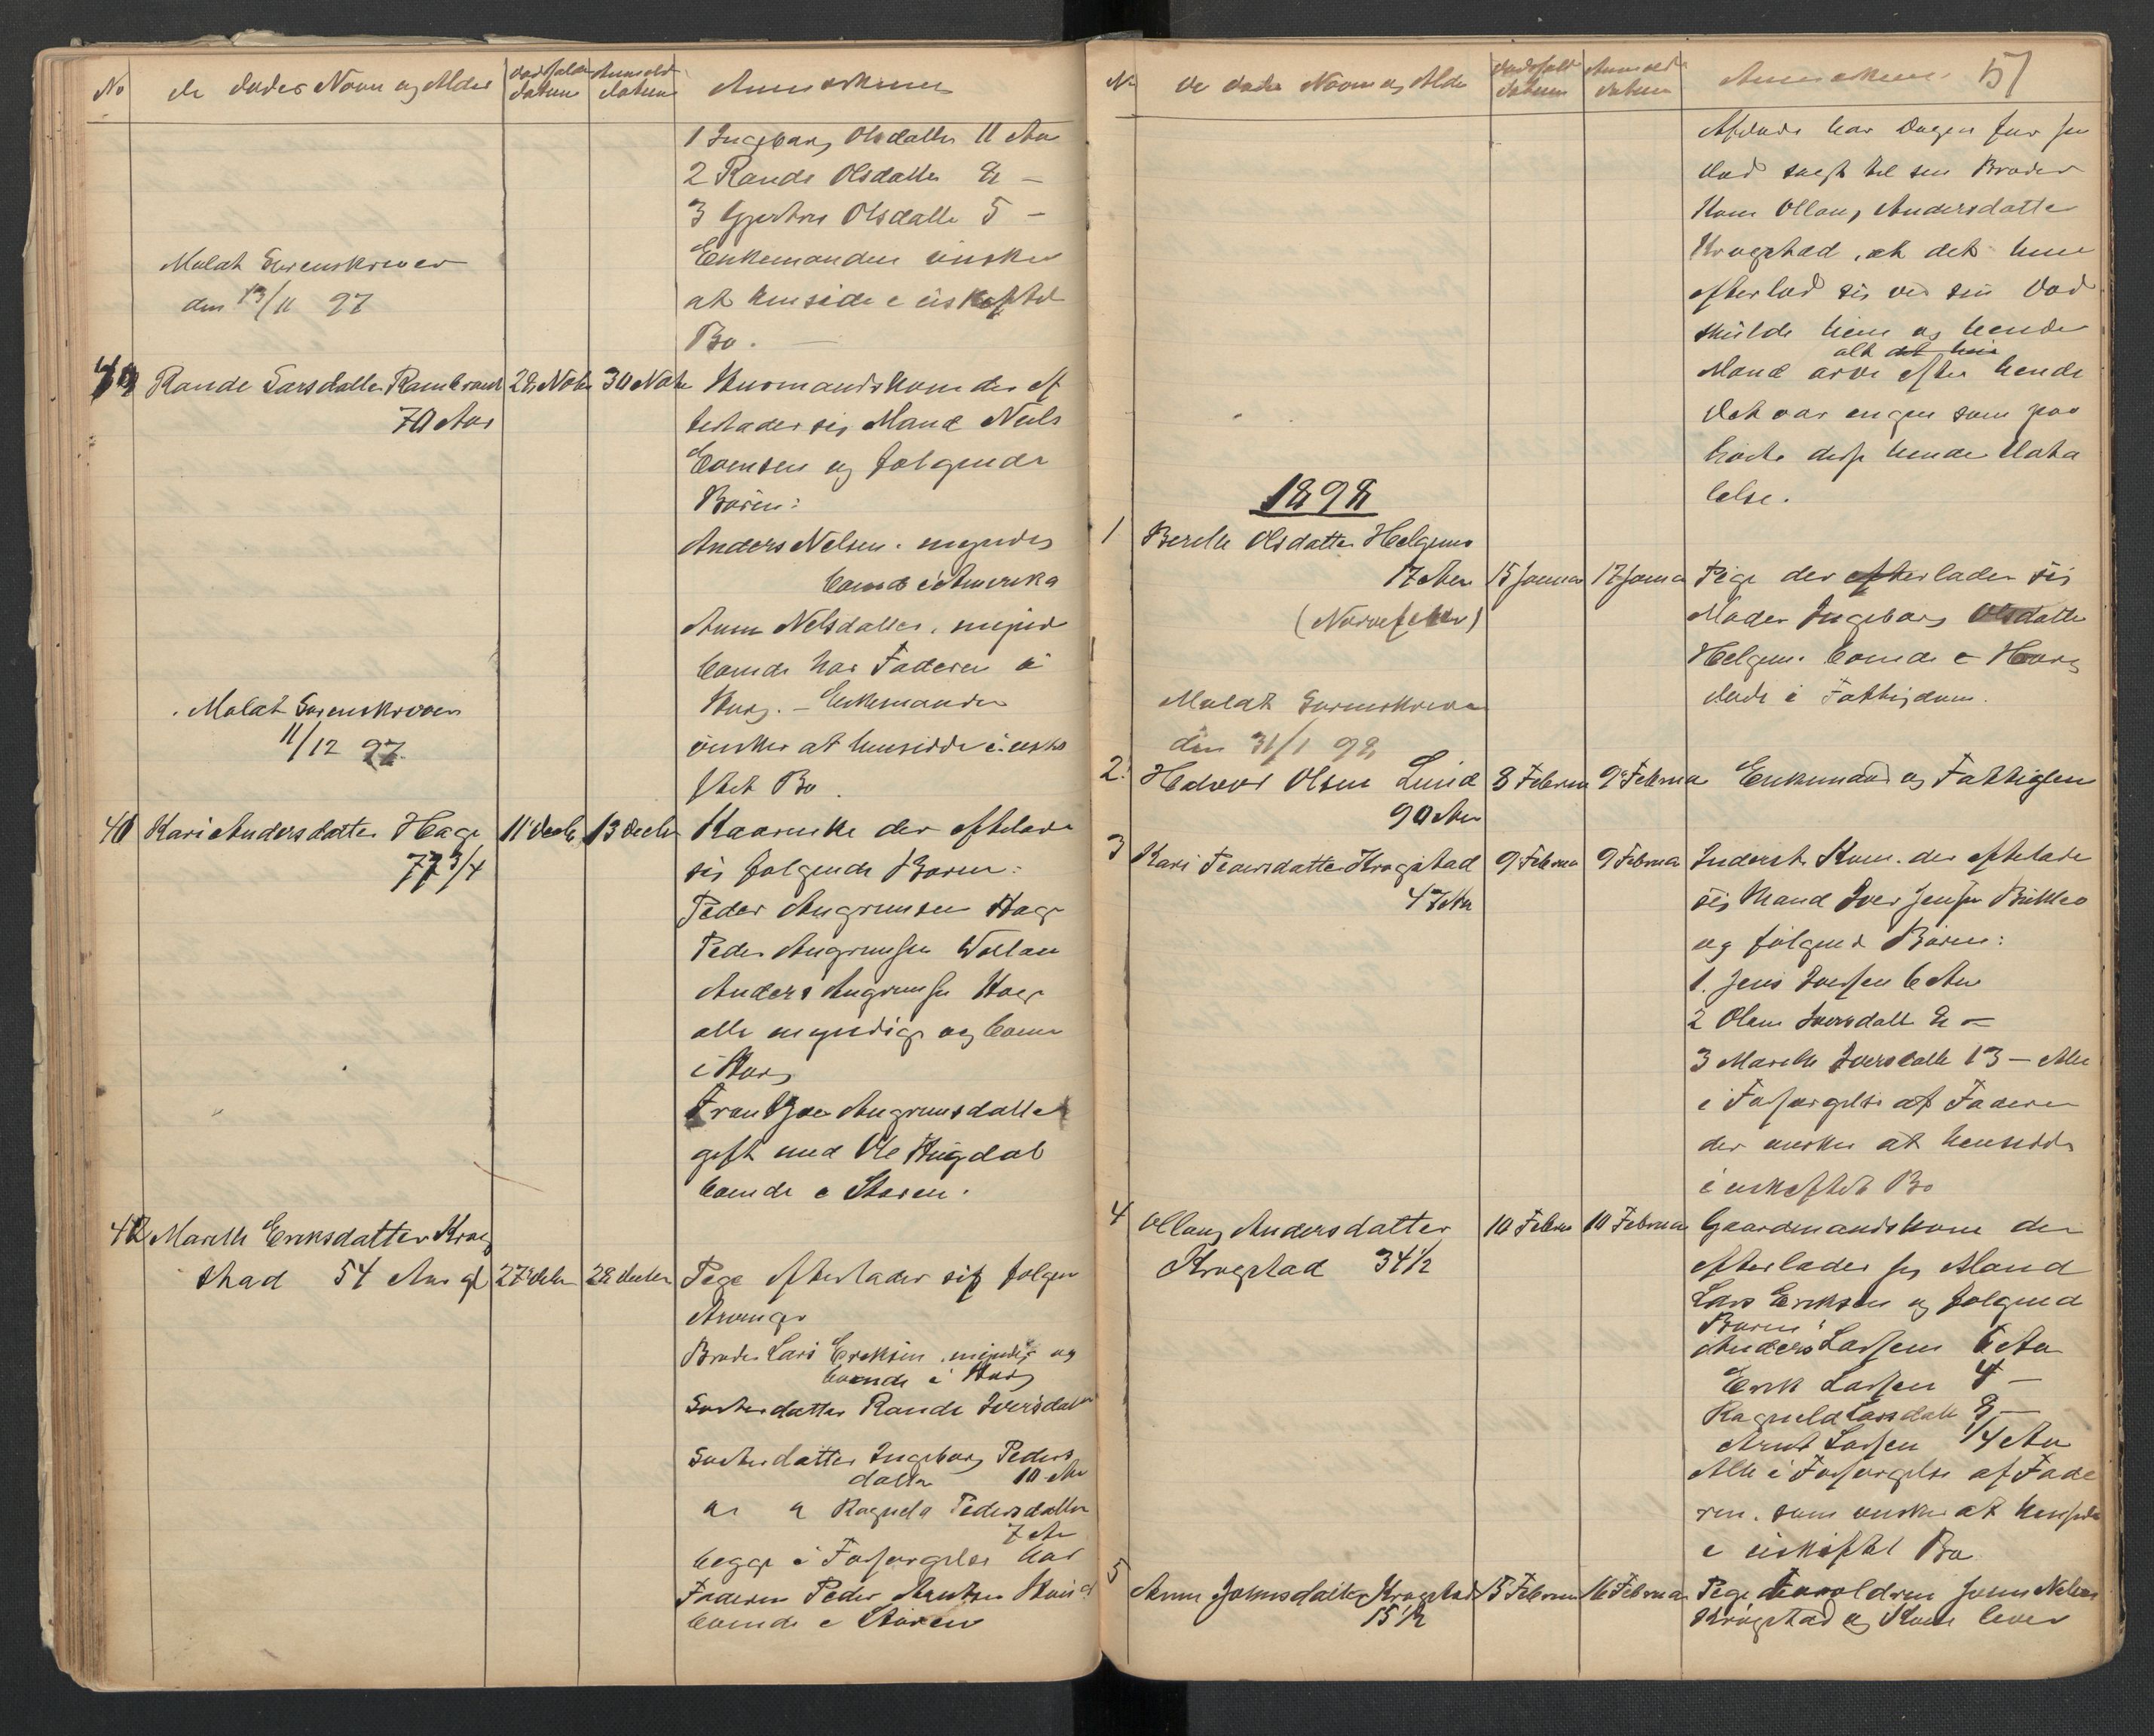 No de dødes Navn og Alder Dødsfalds datum Anmeld. datum Anmerkning
1 Ingebor Olsdatter 11 Aar
2 Rande Olsdatter 8 —
3 Gjertru Olsdatter 5 —
Enkemanden ønsker
at hensidde i uskiftet
Bo. —
Meldt Sorenskriver
den 13/11 97
40 Rande Larsdatter 28 Novbr 30 Novbr Husmandskone der ef
70 Aar terlader sig Mand Nils
Evensen og følgende
Børn:
Anders Nelsen. myndig
boende i Amerika
Anne Nelsdatter, myndi
boende hos Faderen i
Horg. — Enkemanden
ønsker at hensidde i uski
ftet Bo.
Meldt Sorenskriveren
11/12 97
41 Kari Andersdatter Hage 11 Decbr 13 Decbr Kaarenke der efterlader
77 3/4 sig følgende Børn:
Peder Angrimsen Hage
Peder Angrimsen Wollan
Anders Angrimsen Hage
alle myndige og boende
i Horg
Angrimsdatter
gift med Ole Hugdal
boende i Støren.
42 Marith Eriksdatter Krog
stad 54 Aar gl 27 decbr 28 decbr Pige efterlader sig følgen
Arvinger
Broder Lars Eriksen, myndig og
boende i Horg
Søsterdatter Rande Iversdatter
Søsterdatter Ingeborg Peders
datter 10 Aar
" " Ragnela Pedersdatter
7 Aar
begge i Forsørgelse hos
Faderen Peder Arntsen
boende i Støren
No De dødes Navn og Alder Dødsfalds datum Anmeld. datum Anmerkning 51
Afdøde har Dagen før sin
død sagt til sin Broder
Kone Ollaug Andersdatter
Krogstad, at det hun
efterlod sig ved sin Død
skulde hun og hendes
alt det hun
Mand arve efter hende
Det var ingen som paa
hørte disse hendes Udta
lelse.
1898
1 Berith Olsdatter Helgemo
17 Aar 15 Januar 17 Januar Pige der efterlader sig
Moder Ingeborg Olsdatter
Helgemo boende i Horg
døde i Fattigdom.
Meldt Sorenskriver
den 31/1 98
2. Halvor Olsen Lund 8 Februar 9 Februar Enkemand og Fattiglem
90 Aar
3 Kari Pedersdatter Krogstad 9 Februar 9 Februar Inderst Kone. der efterlade
47 Aar sig Mand Iver Jensen
og følgende Børn:
1. Jens Iversen 6 Aar
2 Olem Iversdatt 8 —
3 Marith Iversdatt 13 — Alle
i Forsørgelse af Faderen
der ønsker at hensidde
i uskiftet Bo
4 Ollaug Andersdatter 10 Februar 10 Februar Gaardmandskone der
Krogstad 34 1/2 efterlader sig Mand
Lars Eriksen og følgend
Børn:
Anders Larsen 6 Aar
Erik Larsen 4 —
Ragneld Larsdatt 8 —
Arnt Larsen 1/4 Aar
Alle i Forsørgelse af Fade
ren. som ønsker at hensidde
i uskiftet Bo
5 Anne Johnsdatter Krogstad 15 Februar 16 Februar Pige Forældren John Nelsen
15 1/2 Krogstad og Kone lever